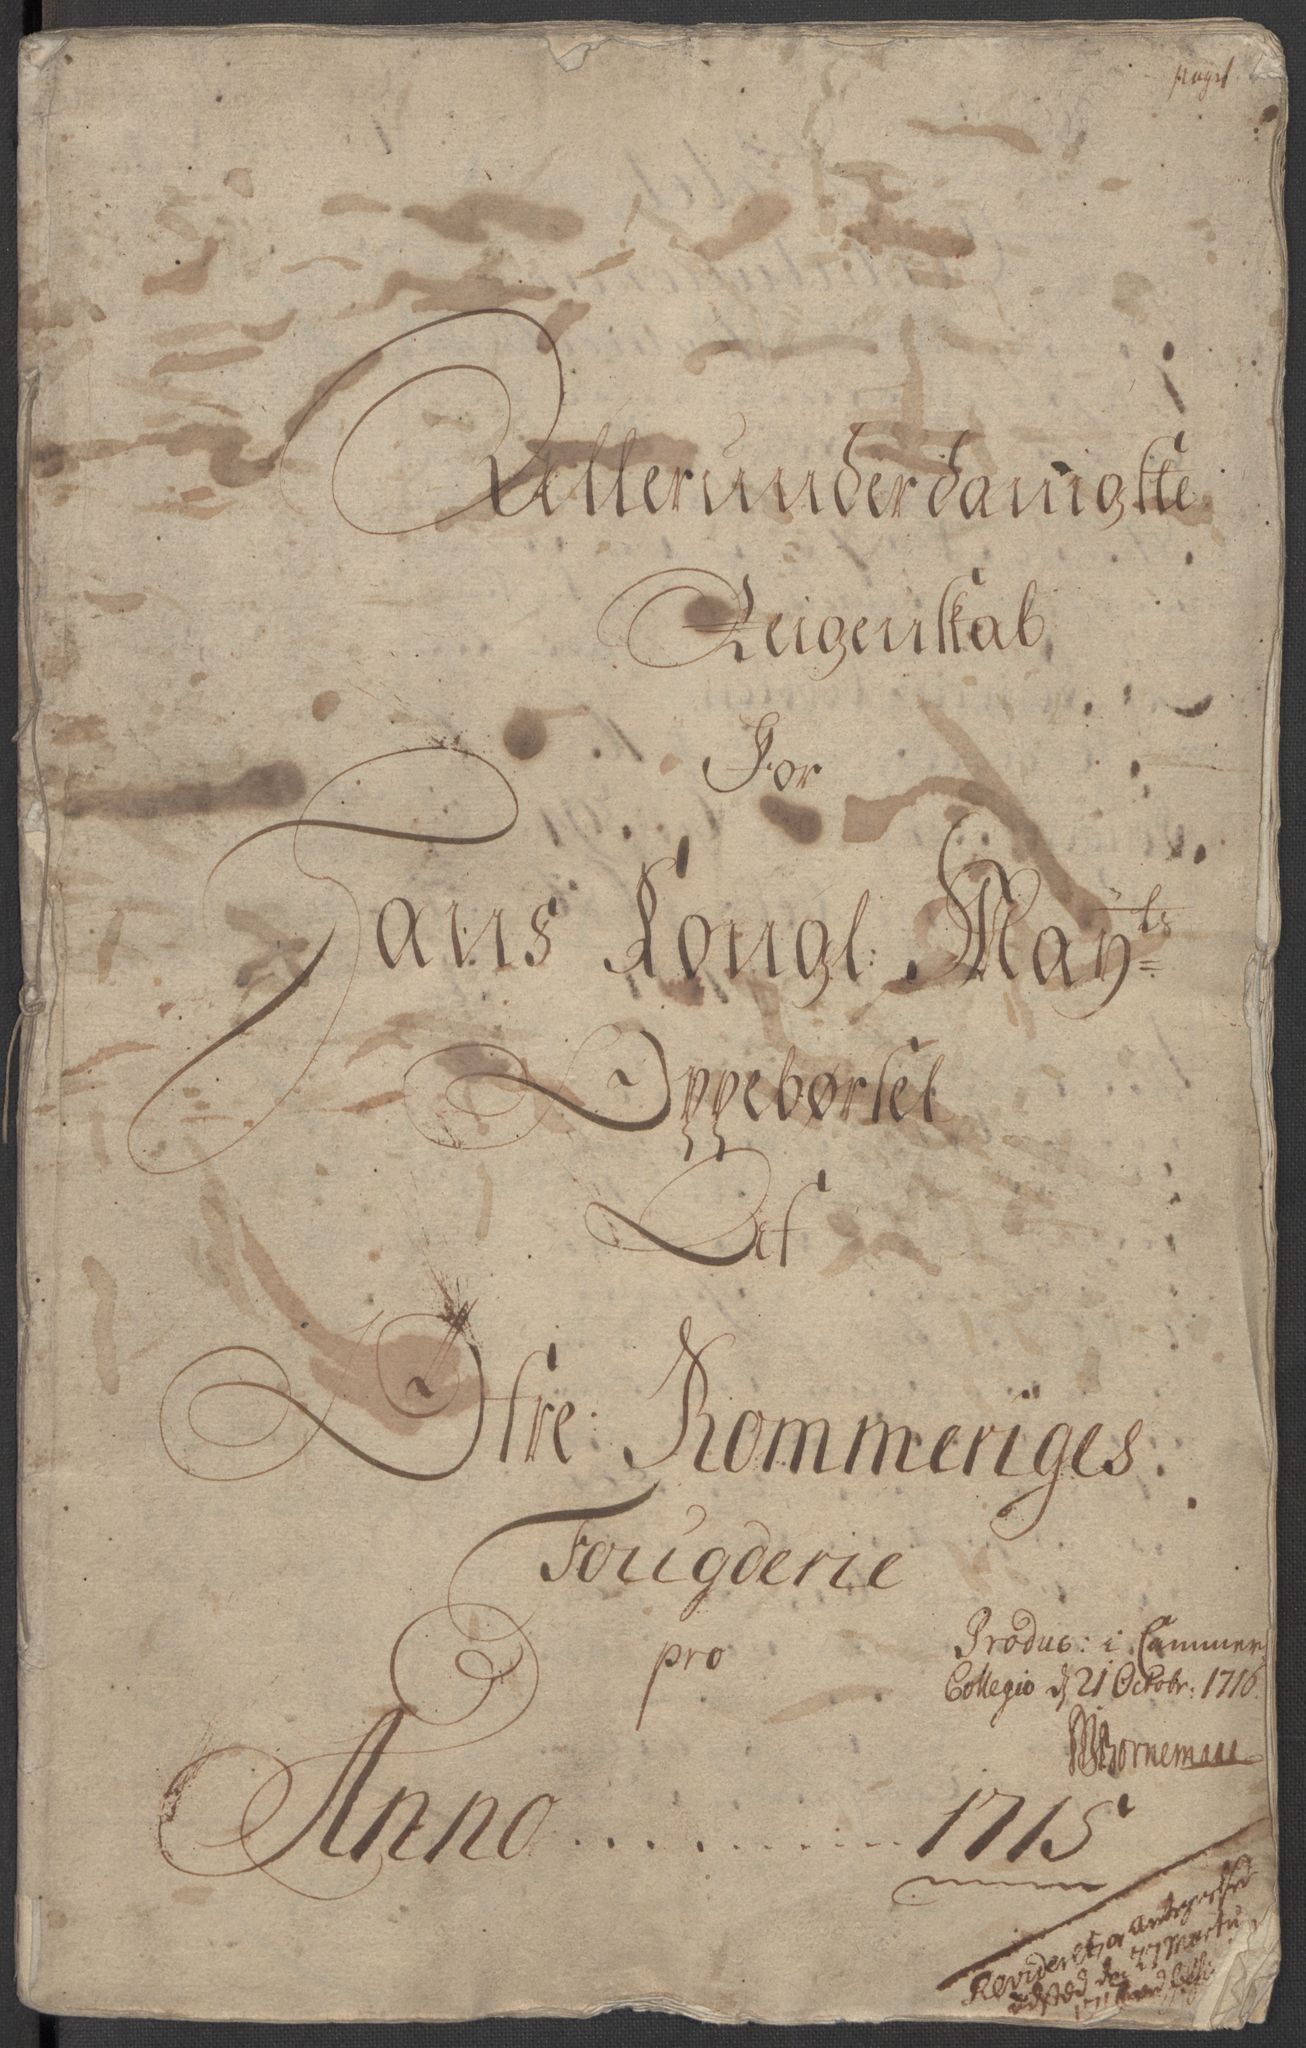 Allerunderdanigste
Reigenskab
For
Hans Kongl: Mayts
Oppebørsel
Af
Øfre Rommeriges
Fougderie
pro
Anno 1715
Produc: i Cammer
Collegio d 21 Octobr: 1716
Borneman
Revideret og Antegnelse
udsted den 27 Marty